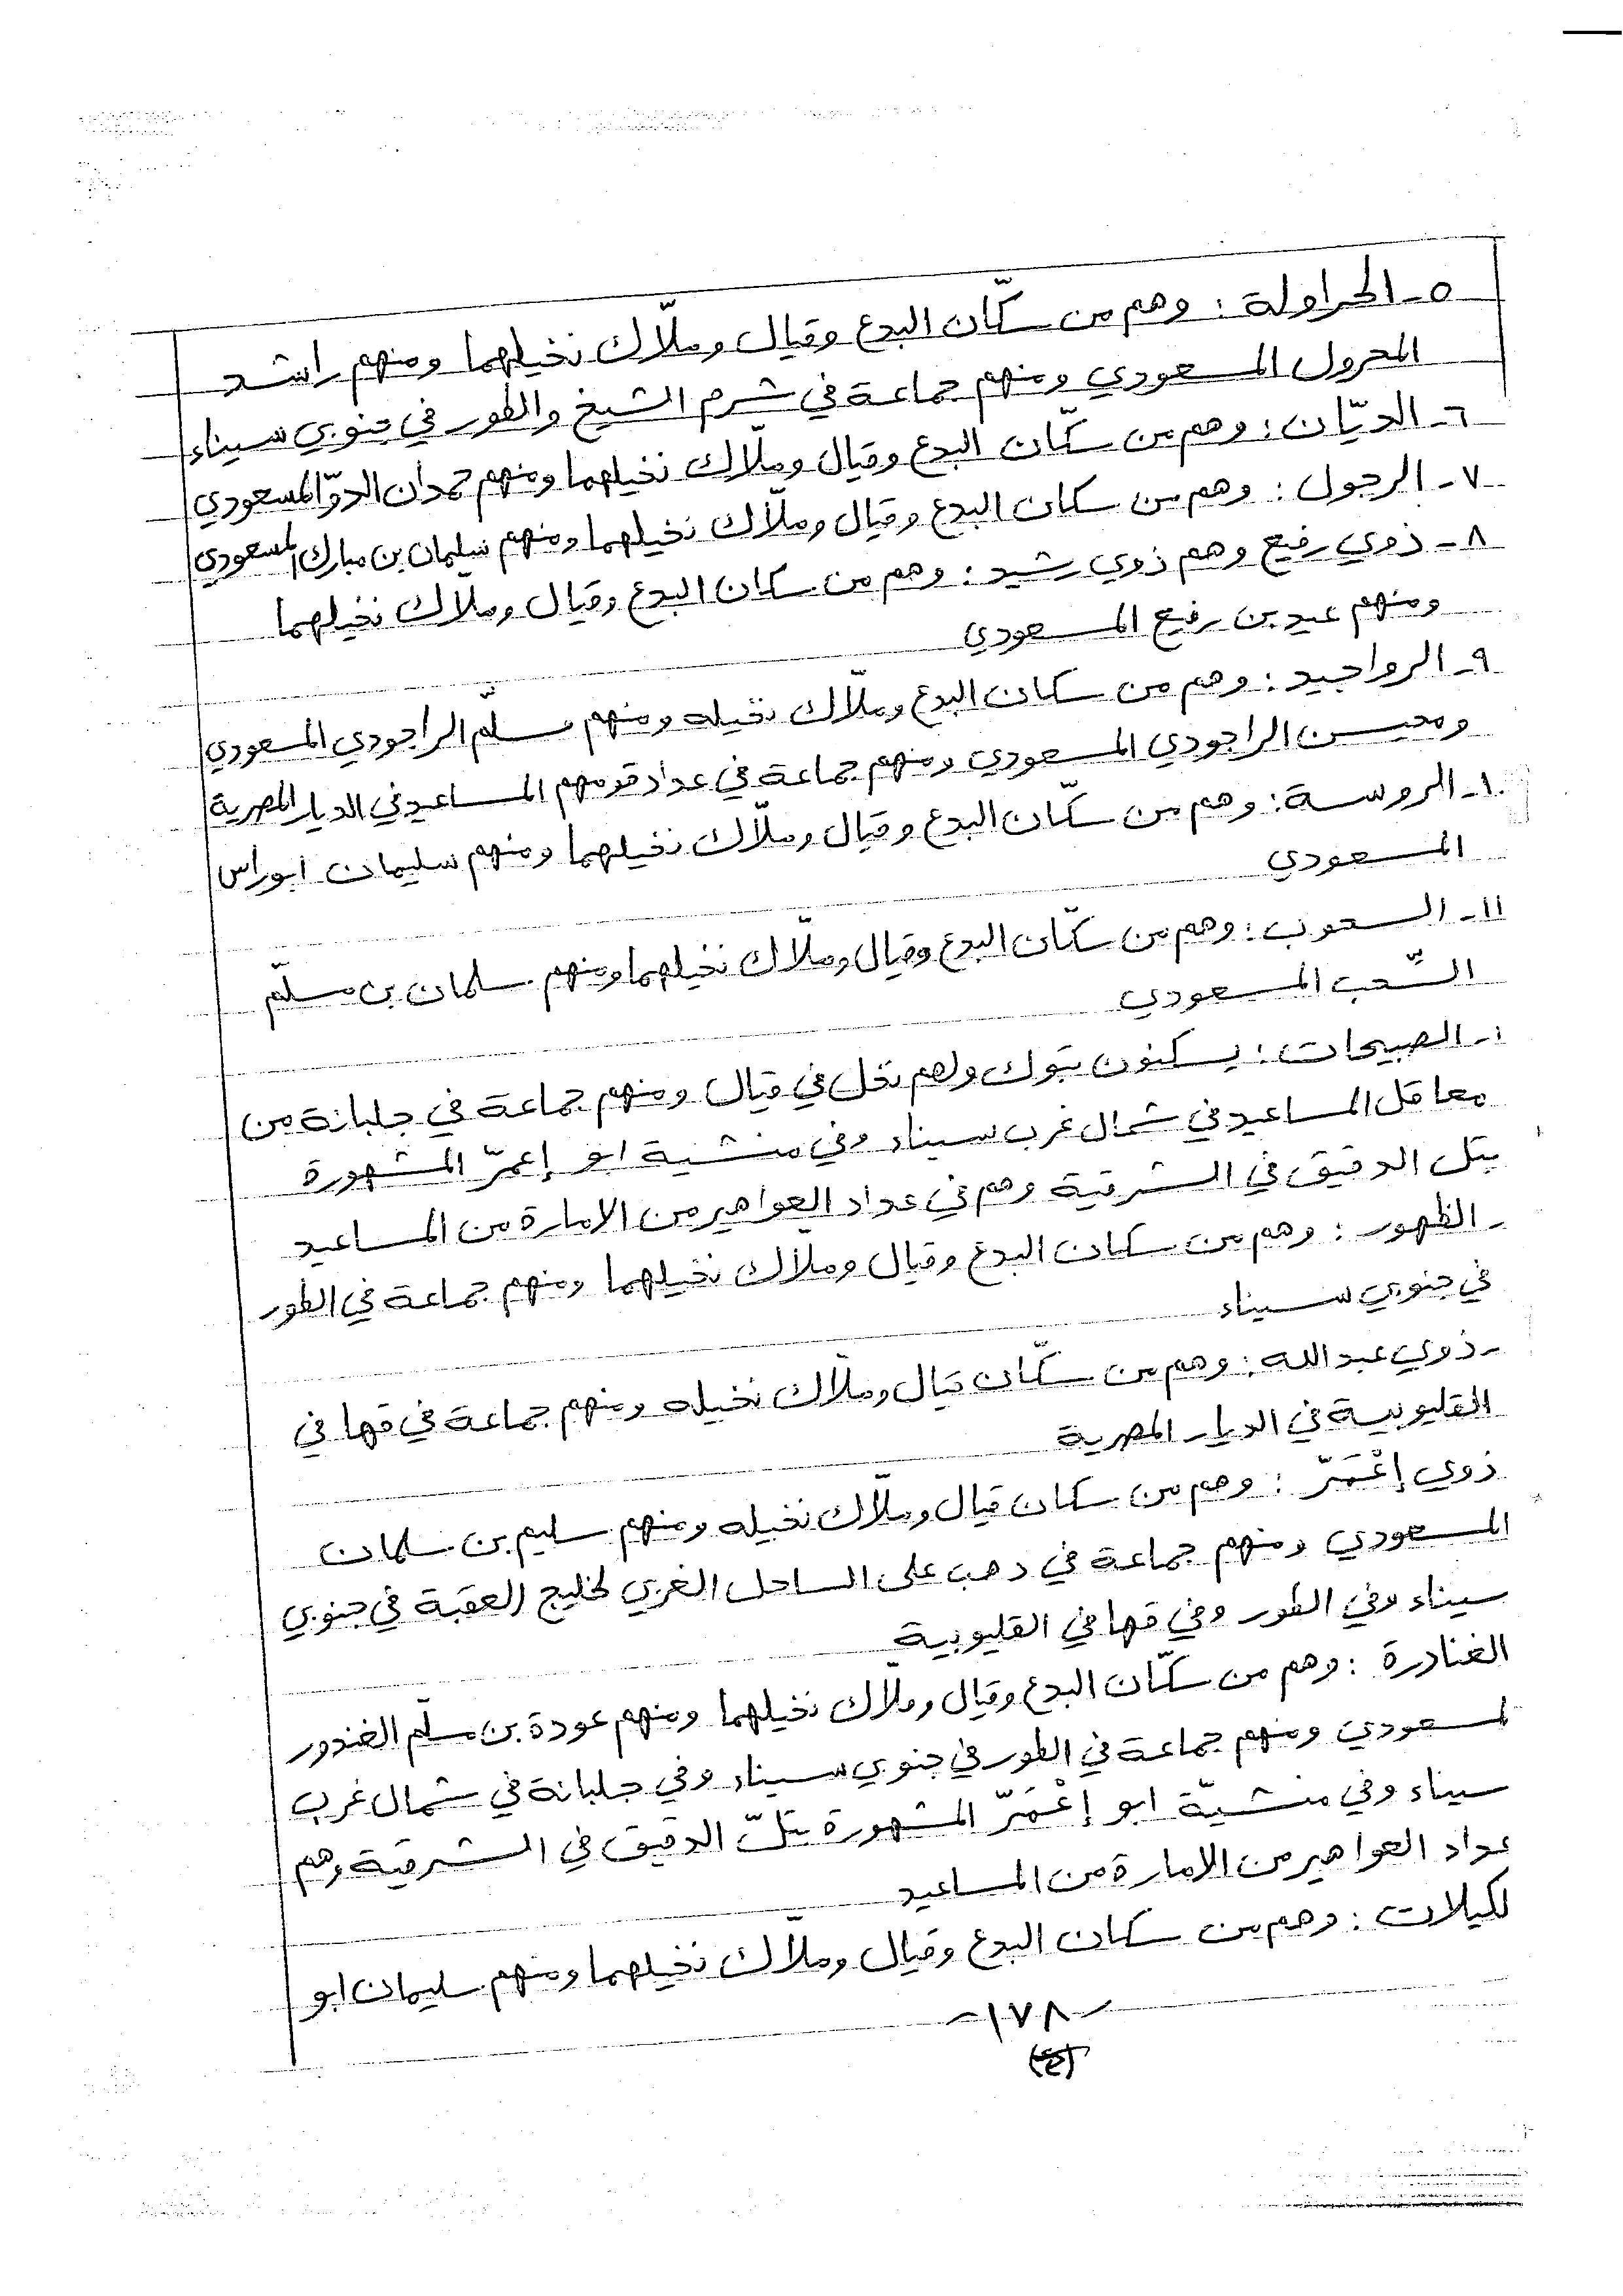 ٥- الحراولة : وهم من سكّان البدع وقيال وملّاك نخيلهما ومنهم راشد
المحرول المسعودي ومنهم جماعة في شرم الشيخ والطور في جنوبي سيناء
٦- الديّان : وهم من سكّان البدع وقيال وملّاك نخيلهما ومنهم حمدان الدوّا المسعودي
٧- الرجول : وهم من سكان البدع وقيال وملّاك نخيلهما ومنهم سليمان بن مبارك المسعودي
٨- ذوي رفيع وهم ذوي رشيد : وهم من سكان البدع وقيال وملّاك نخيلهما
ومنهم عيد بن رفيع المسعودي
٩- الرواجيد : وهم من سكان البدع وملّاك نخيله ومنهم مسلّم الراجودي المسعودي
ومحيسن الراجودي المسعودي ومنهم جماعة في عداد قومهم المساعيد في الديار المصرية
١٠- الروسة : وهم من سكّان البدع وقيال وملّاك نخيلهما ومنهم سليمان ابوراس
المسعودي
١١- السحوب : وهم من سكّان البدع وقيال وملّاك نخيلهما ومنهم سلمان بن مسلّم
السَّحب المسعودي
١- الصبيحات : يسكنون تبوك ولهم نخل في قيال ومنهم جماعة في جلبانة من
معاقل المساعيد في شمال غرب سيناء وفي منشية ابو إعمرّ المشهورة
بتل الدقيق في الشرقية وهم في عداد العواهير من الامارة من المساعيد
- الظهور : وهم من سكان البدع وقيال وملّاك نخيلهما ومنهم جماعة في الطور
في جنوبي سيناء
- ذوي عبدالله : وهم من سكّان قيال وملّاك نخيله ومنهم جماعة في قها في
القليوبية في الديار المصرية
ذوي إعْمَرّ : وهم من سكان قيال وملّاك نخيله ومنهم سليم بن سلمان
المسعودي ومنهم جماعة في دهب على الساحل الغربي لخليج العقبة في جنوبي
سيناء وفي الطور وفي قها في القليوبية
الغنادرة : وهم من سكّان البدع وقيال وملّاك نخيلهما ومنهم عودة بن مسلّم الغندور
لمسعودي ومنهم جماعة في الطور في جنوبي سيناء وفي جلبانة في شمال غرب
سيناء وفي منشيّة ابو إعْمَرّ المشهورة بتلّ الدقيق في الشرقية وهم
عداد العواهير من الامارة من المساعيد
لكيلات : وهم من سكان البدع وقيال وملّاك نخيلهما ومنهم سليمان ابو
- ١٧٨ -